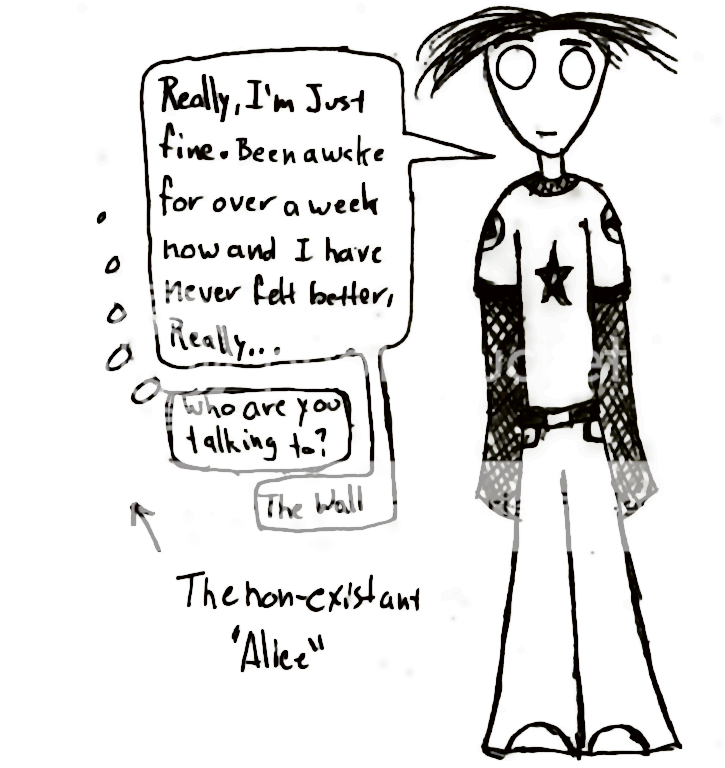 Really, I'm Just
fine. Been awake
for over a week
now and I have
never felt better,
Really...
Who are you
talking to?
The Wall
The non-existant
"Alice"